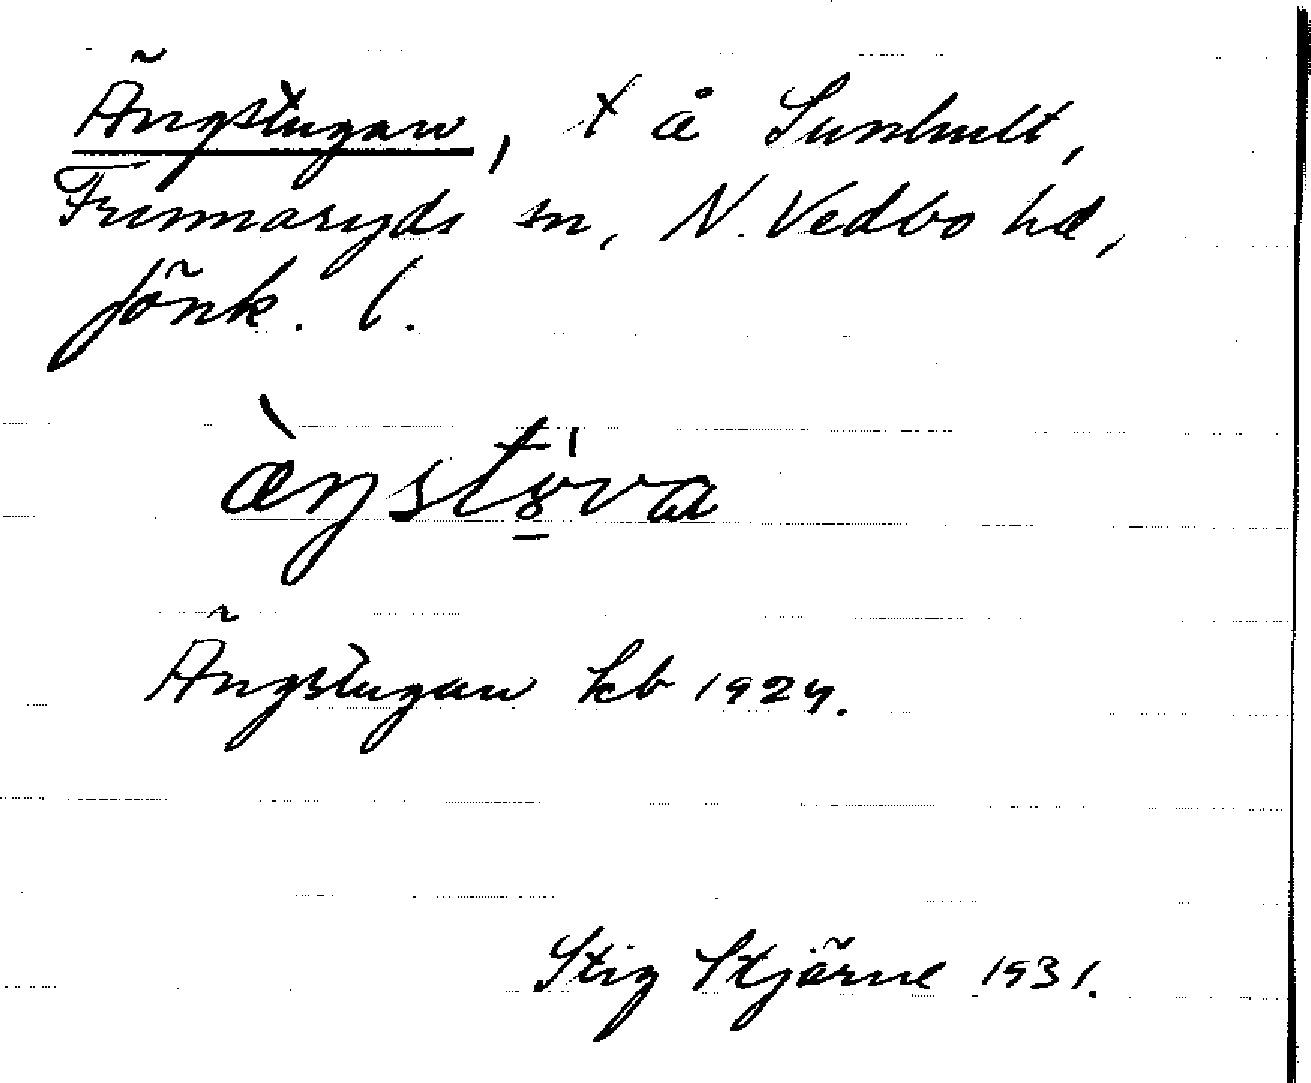 Ängstugan, t å Sunhult,
Frinnaryds sn, N. Vedbo hd,
Jönk. l.
ängstöva
Ängstugan kb 1924.
Stig Stjärne 1931.